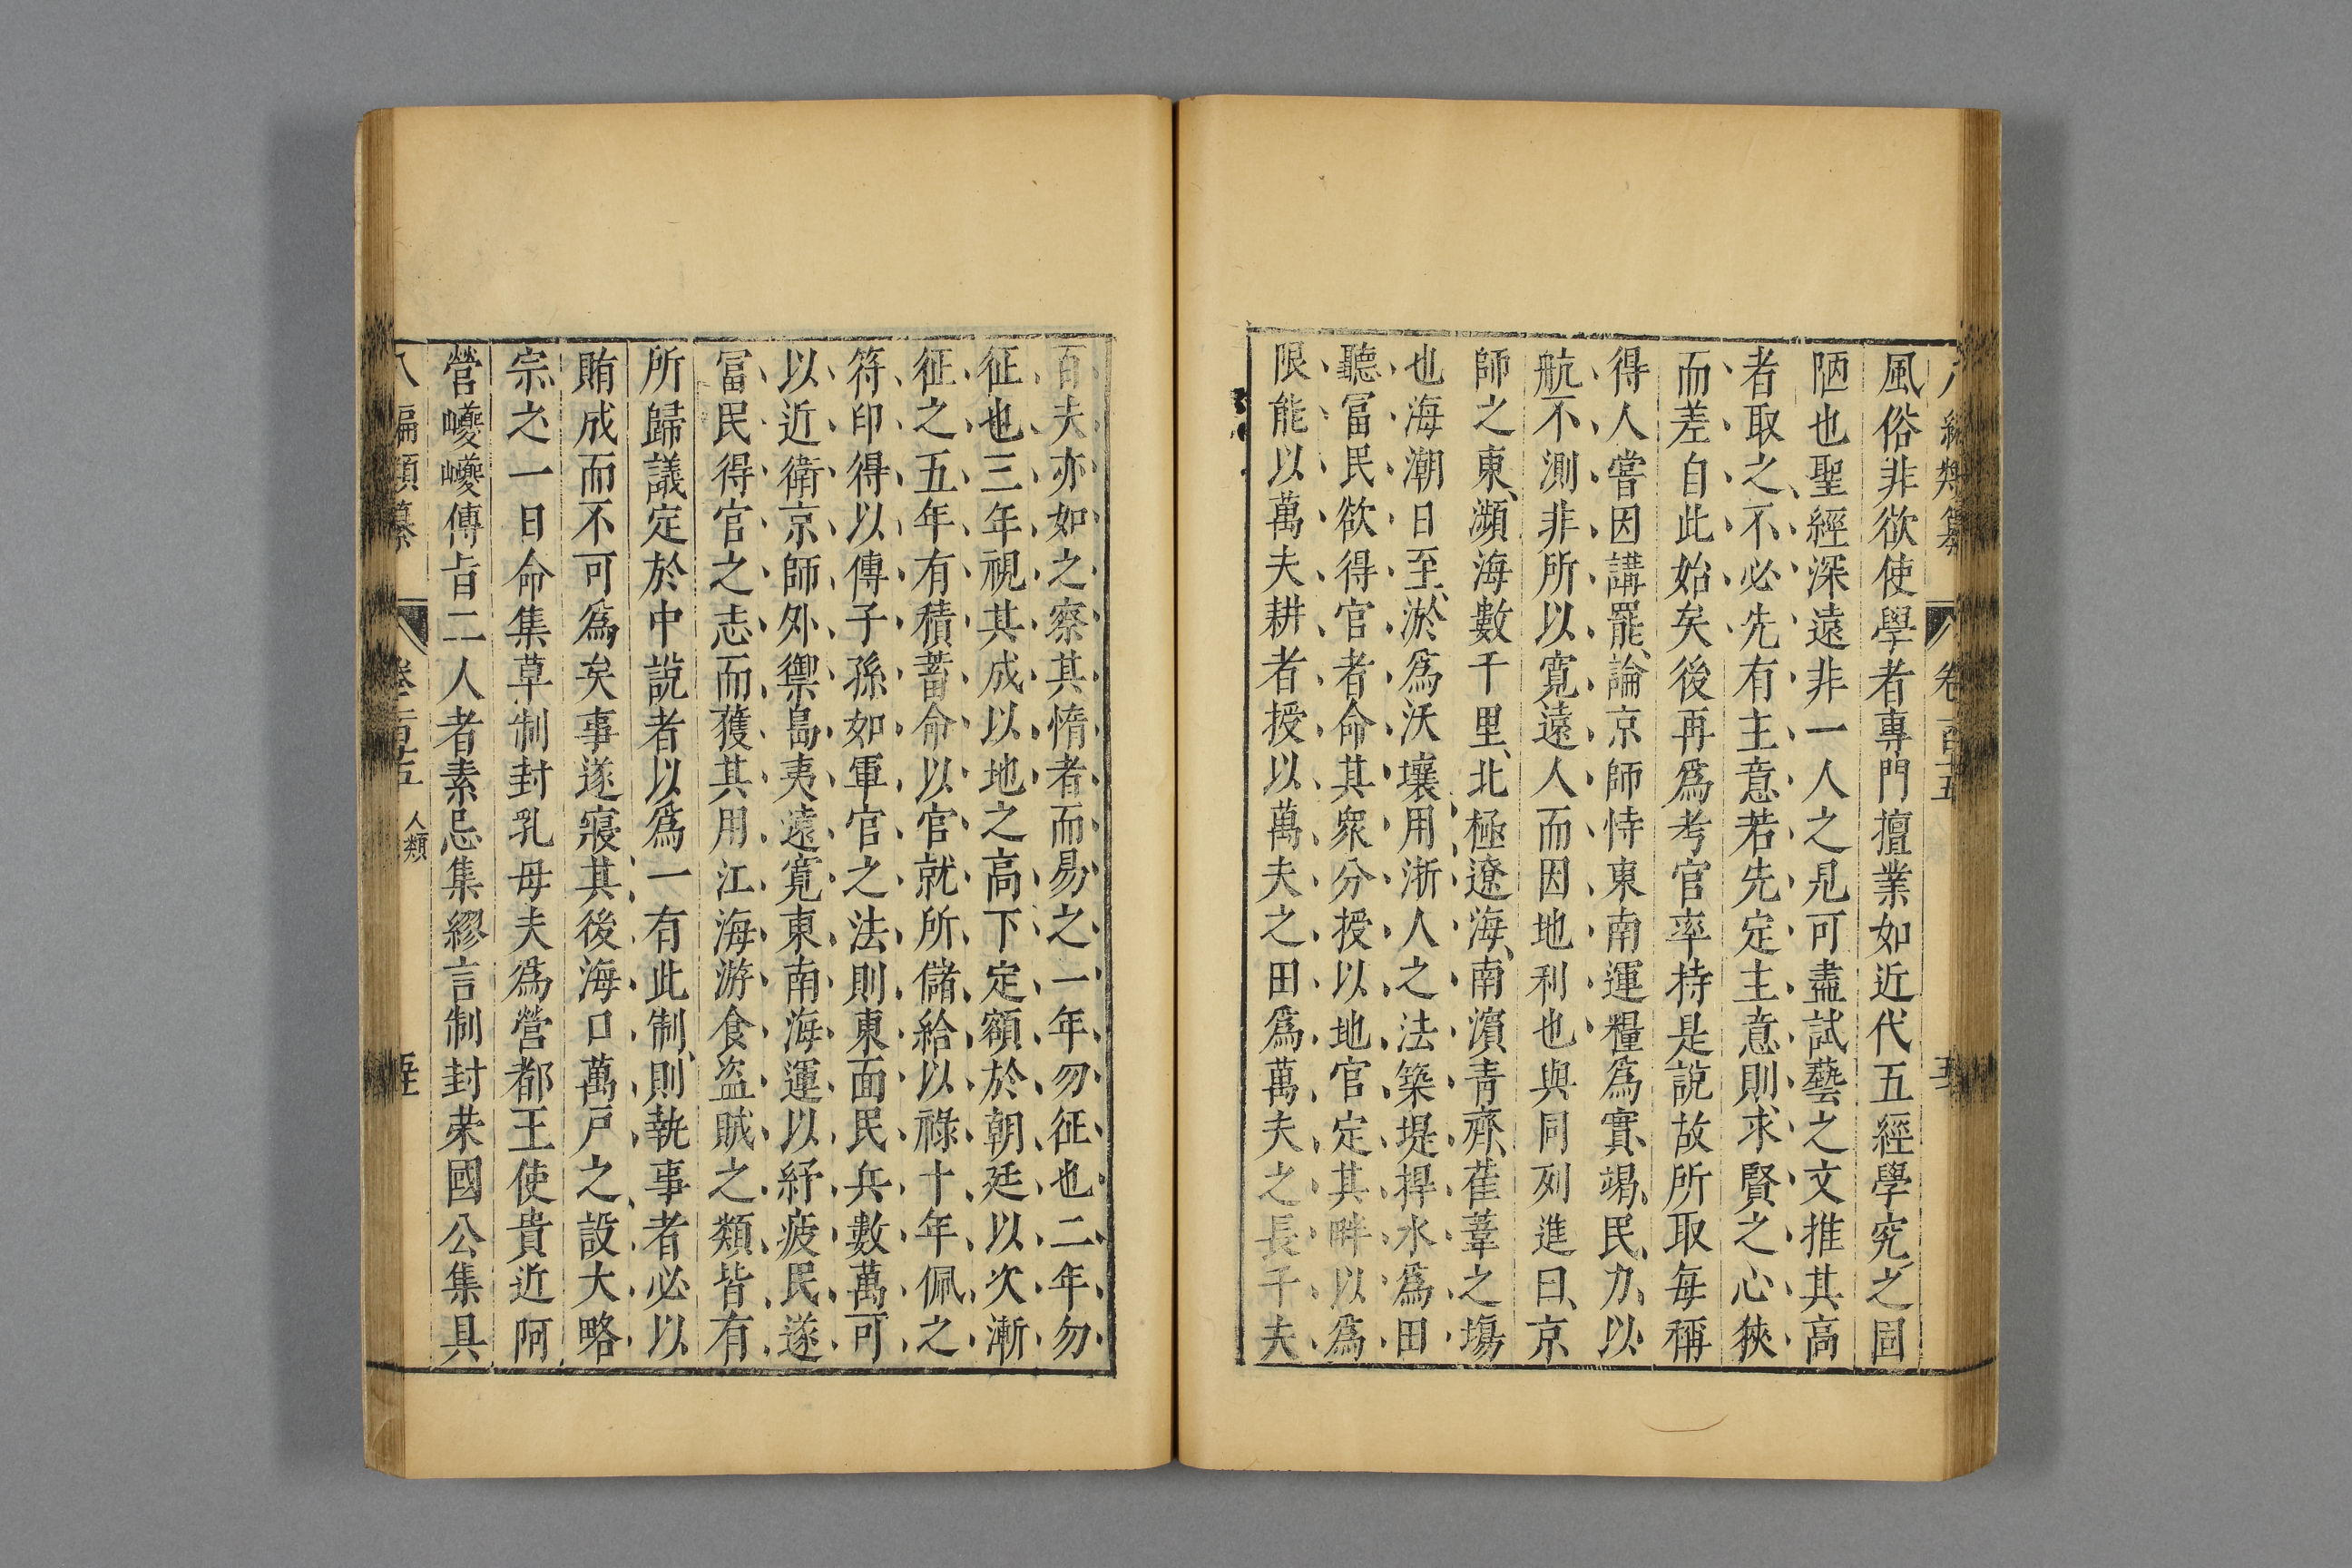 風俗非欲使學者專門擅業如近代五經學究之固
陋也聖經深遠非一人之見可盡試藝之文推其高
者取之不必先有主意若先定主意則求賢之心狹
而差自此始矣後再爲考官率持是說故所取每稱
得人嘗因講罷論京師恃東南運糧爲實竭民力以
航不測非所以寛遠人而因地利也與同列進曰京
師之東瀕海數千里北極遼海南濵青齊萑葦之塲
也海潮日至淤爲沃壤用浙人之法築堤捍水爲田
聽冨民欲得官者命其衆分授以地官定其畔以爲
限能以萬夫耕者授以萬夫之田爲萬夫之長千夫
百夫亦如之察其惰者而易之一年勿征也二年勿
征也三年視其成以地之高下定額於朝廷以次漸
征之五年有積蓄命以官就所儲給以祿十年佩之
符印得以傳子孫如軍官之法則東面民兵數萬可
以近衛京師外禦島夷遠寛東南海運以紓疲民遂
冨民得官之志而獲其用江海游食盗賊之類皆有
所歸議定於中說者以爲一有此制則執事者必以
賄成而不可爲矣事遂寢其後海口萬戶之設大略
宗之一日命集草制封乳母夫爲營都王使貴近阿
營巙巙傳旨二人者素忌集繆言制封荣國公集具
八編類纂 卷二百五 人類